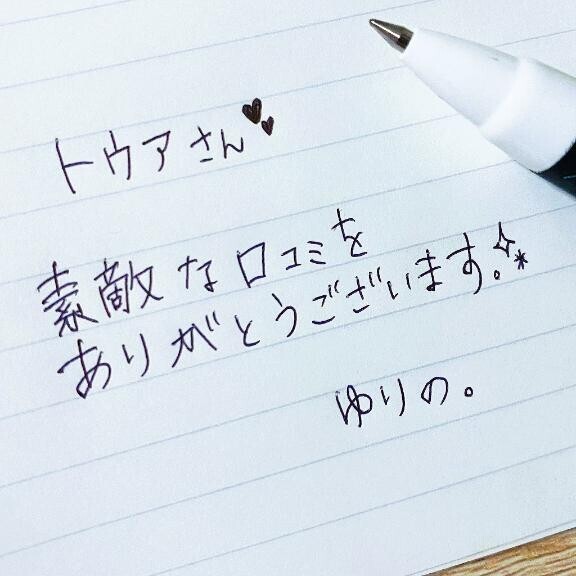 トウアさん♥♥
素敵な口コミを
ありがとうございます。✧*
ゆりの。